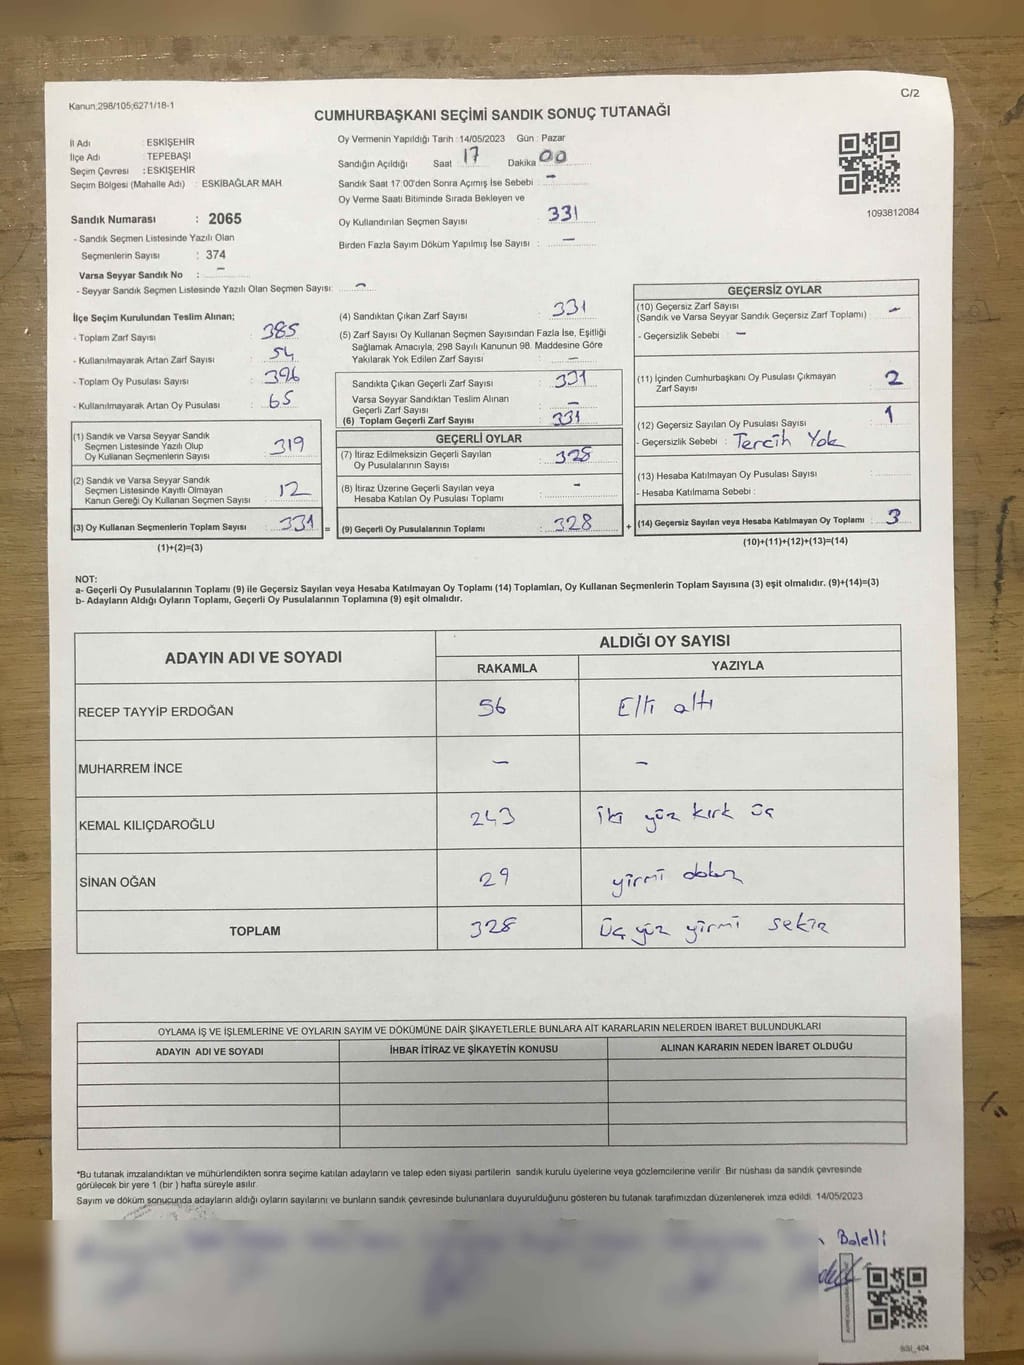 Kanun;298/105;6271/18-1
C/2
CUMHURBAŞKANI SEÇİMİ SANDIK SONUÇ TUTANAĞI
İl Adı : ESKIŞEHİR
İlçe Adı : TEPEBAŞI
Seçim Çevresi : ESKIŞEHİR
Seçim Bölgesi (Mahalle Adı) : ESKİBAĞLAR MAH.
Sandık Numarası : 2065
- Sandık Seçmen Listesinde Yazılı Olan
Seçmenlerin Sayısı : 374
Varsa Seyyar Sandık No : -
- Seyyar Sandık Seçmen Listesinde Yazılı Olan Seçmen Sayısı: -
Oy Vermenin Yapıldığı Tarih : 14/05/2023 Gün : Pazar
Sandığın Açıldığı Saat 17 Dakika 00
Sandık Saat 17:00'den Sonra Açımış İse Sebebi : -
Oy Verme Saati Bitiminde Sırada Bekleyen ve
Oy Kullandırılan Seçmen Sayısı : 331
Birden Fazla Sayım Döküm Yapılmış İse Sayısı : -
1093812084
İlçe Seçim Kurulundan Teslim Alınan;
- Toplam Zarf Sayısı : 385
- Kullanılmayarak Artan Zarf Sayısı : 54
- Toplam Oy Pusulası Sayısı : 396
- Kullanılmayarak Artan Oy Pusulası : 65
(1) Sandık ve Varsa Seyyar Sandık
Seçmen Listesinde Yazılı Olup
Oy Kullanan Seçmenlerin Sayısı : 319
(2) Sandık ve Varsa Seyyar Sandık
Seçmen Listesinde Kayıtlı Olmayan
Kanun Gereği Oy Kullanan Seçmen Sayısı : 12
(3) Oy Kullanan Seçmenlerin Toplam Sayısı : 331 =
(1)+(2)=(3)
(4) Sandıktan Çıkan Zarf Sayısı : 331
(5) Zarf Sayısı Oy Kullanan Seçmen Sayısından Fazla İse, Eşitliği
Sağlamak Amacıyla, 298 Sayılı Kanunun 98. Maddesine Göre
Yakılarak Yok Edilen Zarf Sayısı : -
Sandıkta Çıkan Geçerli Zarf Sayısı : 331
Varsa Seyyar Sandıktan Teslim Alınan
Geçerli Zarf Sayısı : -
(6) Toplam Geçerli Zarf Sayısı : 331
GEÇERLİ OYLAR
(7) İtiraz Edilmeksizin Geçerli Sayılan
Oy Pusulalarının Sayısı : 328
(8) İtiraz Üzerine Geçerli Sayılan veya
Hesaba Katılan Oy Pusulası Toplamı : -
(9) Geçerli Oy Pusulalarının Toplamı : 328 +
GEÇERSİZ OYLAR
(10) Geçersiz Zarf Sayısı
(Sandık ve Varsa Seyyar Sandık Geçersiz Zarf Toplamı) : -
- Geçersizlik Sebebi : -
(11) İçinden Cumhurbaşkanı Oy Pusulası Çıkmayan
Zarf Sayısı : 2
(12) Geçersiz Sayılan Oy Pusulası Sayısı : 1
- Geçersizlik Sebebi : Tercih Yok
(13) Hesaba Katılmayan Oy Pusulası Sayısı :
- Hesaba Katılmama Sebebi :
(14) Geçersiz Sayılan veya Hesaba Katılmayan Oy Toplamı : 3
(10)+(11)+(12)+(13)=(14)
NOT:
a- Geçerli Oy Pusulalarının Toplamı (9) ile Geçersiz Sayılan veya Hesaba Katılmayan Oy Toplamı (14) Toplamları, Oy Kullanan Seçmenlerin Toplam Sayısına (3) eşit olmalıdır. (9)+(14)=(3)
b- Adayların Aldığı Oyların Toplamı, Geçerli Oy Pusulalarının Toplamına (9) eşit olmalıdır.
ADAYIN ADI VE SOYADI
ALDIĞI OY SAYISI
RAKAMLA YAZIYLA
RECEP TAYYİP ERDOĞAN 56 Elli altı
MUHARREM İNCE - -
KEMAL KILIÇDAROĞLU 243 iki yüz kırk üç
SİNAN OĞAN 29 yirmi dokuz
TOPLAM 328 üç yüz yirmi sekiz
OYLAMA İŞ VE İŞLEMLERİNE VE OYLARIN SAYIM VE DÖKÜMÜNE DAİR ŞİKAYETLERLE BUNLARA AİT KARARLARIN NELERDEN İBARET BULUNDUKLARI
ADAYIN ADI VE SOYADI İHBAR İTİRAZ VE ŞİKAYETİN KONUSU ALINAN KARARIN NEDEN İBARET OLDUĞU
*Bu tutanak imzalandıktan ve mühürlendikten sonra seçime katılan adayların ve talep eden siyasi partilerin sandık kurulu üyelerine veya gözlemcilerine verilir. Bir nüshası da sandık çevresinde
görülecek bir yere 1 (bir ) hafta süreyle asılır.
Sayım ve döküm sonucunda adayların aldığı oyların sayılarını ve bunların sandık çevresinde bulunanlara duyurulduğunu gösteren bu tutanak tarafımızdan düzenlenerek imza edildi. 14/05/2023
Balelli